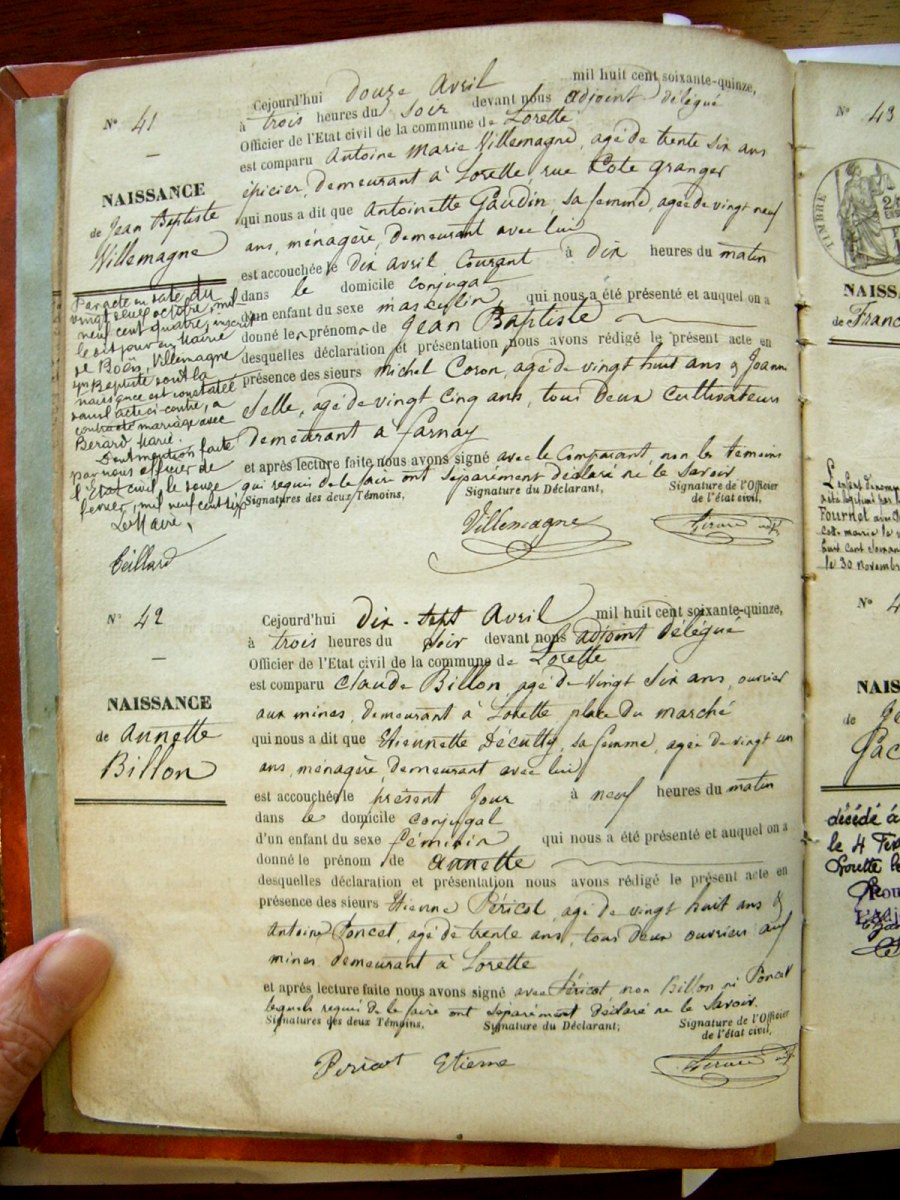 N° 41
NAISSANCE
de Jean Baptiste
Villemagne
Par acte en date du
vingt deux octobre, mil
neuf cent quatre, inscrit
le dit jour en Mairie
de Boën, Villemagne
Jn Baptiste dont la
naissance est constatée
dans l'acte ci-contre, a
contracté mariage avec
Berard Marie.
Dont mention faite
par nous officier de
l'Etat civil, le douze
fevrier, mil neuf cent six
Le Maire,
Teillard
Cejourd'hui douze Avril mil huit cent soixante-quinze,
à trois heures du soir devant nous adjoint délégué
Officier de l'Etat civil de la commune de Lorette
est comparu Antoine Marie Villemagne, agé de trente six ans
épicier, demeurant à Lorette rue Cote Granger
qui nous a dit que Antoinette Gaudin, sa femme, agée de vingt neuf
ans, ménagère, demeurant avec lui
est accouchée le dix avril Courant à dix heures du matin
dans le domicile conjugal
d'un enfant du sexe masculin qui nous a été présenté et auquel on a
donné les prénoms de Jean Baptiste
desquelles déclaration et présentation nous avons rédigé le présent acte en
présence des sieurs Michel Coron, agé de vingt huit ans & Joanny
Selle, agé de vingt cinq ans, tous deux cultivateurs
demeurant à Farnay
et après lecture faite nous avons signé avec le Comparant non les témoins
qui requis de le faire ont séparément déclaré ne le savoir
Signatures des deux Témoins, Signature du Déclarant, Signature de l'Officier
de l'état civil,
Villemagne
N° 42
NAISSANCE
de Annette
Billon
Cejourd'hui dix-sept Avril mil huit cent soixante-quinze,
à trois heures du soir devant nous adjoint délégué
Officier de l'Etat civil de la commune de Lorette
est comparu Claude Billon agé de vingt six ans, ouvrier
aux mines, demeurant à Lorette place du marché
qui nous a dit que Etiennette Décully, sa femme, agée de vingt un
ans, ménagère, demeurant avec lui
est accouchée le présent jour à neuf heures du matin
dans le domicile conjugal
d'un enfant du sexe féminin qui nous a été présenté et auquel on a
donné le prénom de Annette
desquelles déclaration et présentation nous avons rédigé le présent acte en
présence des sieurs Etienne Péricot, agé de vingt huit ans &
Antoine Poncet, agé de trente ans, tous deux ouvriers aux
mines demeurant à Lorette
et après lecture faite nous avons signé avec Péricot non Billon ni Poncet
lesquels requis de le faire ont séparément déclaré ne le savoir.
Signatures des deux Témoins, Signature du Déclarant, Signature de l'Officier
de l'état civil,
Pericot Etienne
N° 43
TIMBRE
NAISS
de Franc
Fournet
le 30 novembre
N° 4
NAIS
de
décédé à
le 4